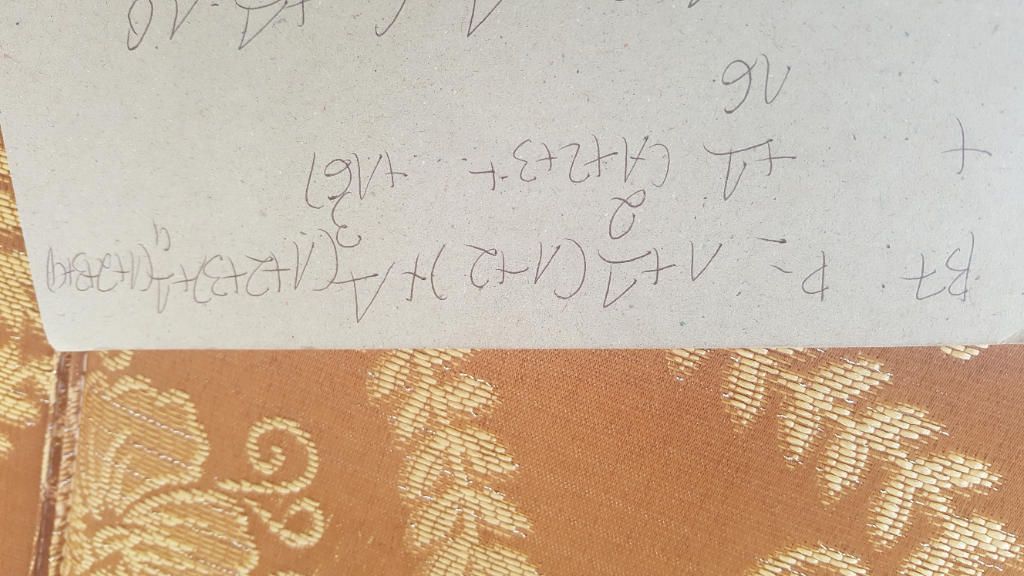 B7. P = 1+1/2(1+2)+1/3(1+2+3)+1/4(1+2+3+4)
+ +1/16(1+2+3+ +16)